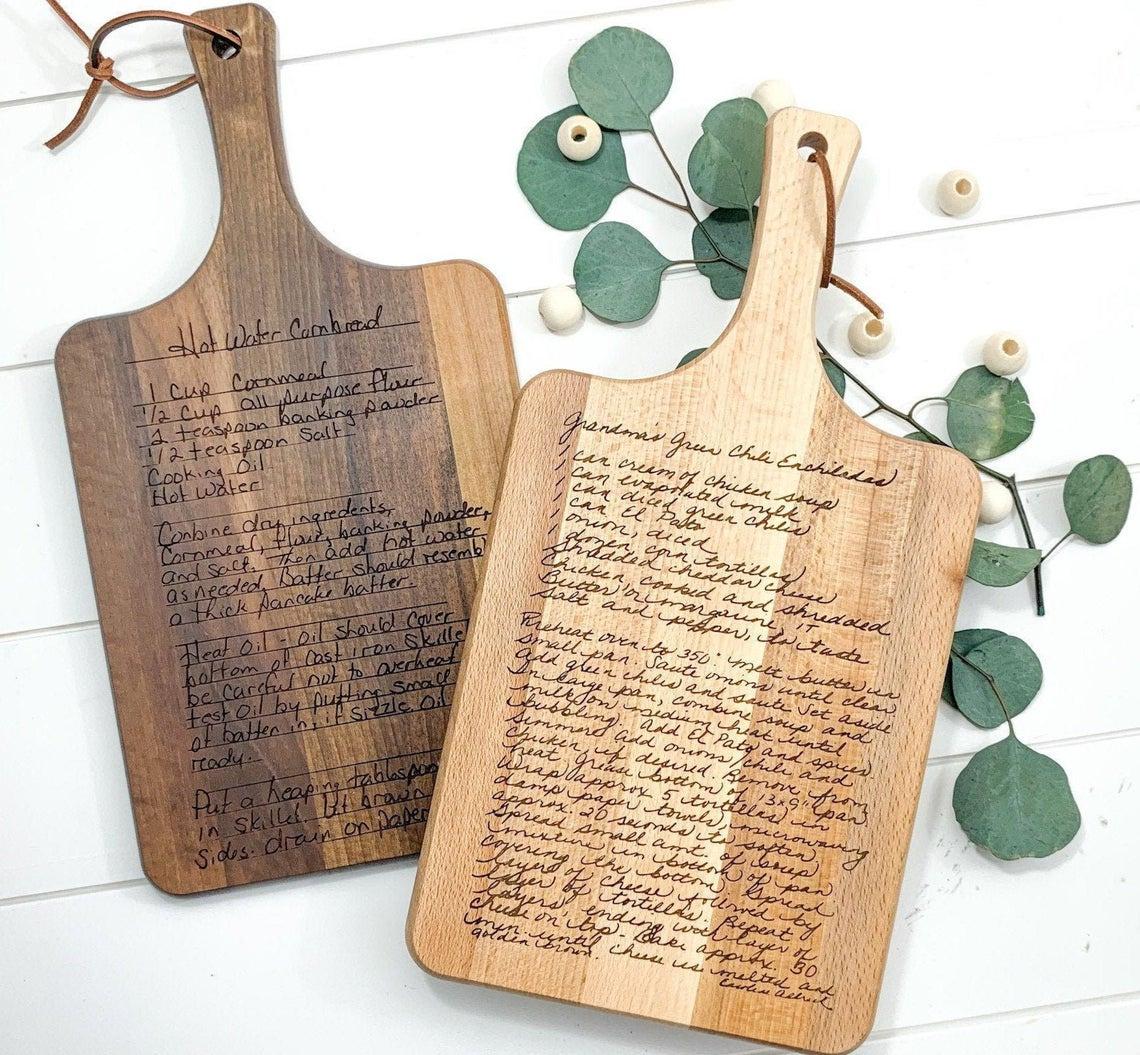 Hot Water Cornbread
1 Cup Cornmeal
1/2 Cup all purpose flour
1 teaspoon banking powder
1/2 teaspoon Salt
Cooking Oil
Hot Water
Conbine dry ingredients,
Cornmeal, flour, banking powder,
and salt. Then add hot water
as needed, batter should resemb
a thick pancake batter.
Heat Oil - Oil should Cover
bottom of Cast iron Skille
be careful not to overheat
test Oil by putting small
of batter in; if Sizzle Oil
ready.
Put a heaping tablespoo
in skillet. Let brown
Sides. drain on paper
Grandma's Green Chili Enchiladas
1 can cream of chicken soup
1 can evaporated milk
1 can diced green chilies
1 can El Pato
1 onion, diced
1 dozen corn tortillas
Shredded cheddar cheese
Chicken, cooked and shredded
Butter or margarine, 1T
Salt and pepper, to taste
Preheat oven to 350°. Melt butter in
small pan. Saute onions until clear.
Add green chilis and saute. Set aside
In large pan, combine soup and
milk on medium heat until
bubbling. Add El Pato and spices.
Simmer. Add onions/chili and
chicken if desired. Remove from
heat. Grease bottom of 13x9" pan.
Wrap approx 5 tortillas in
damp paper towels, microwaving
approx. 20 seconds to soften.
Spread small amt of soup
mixture in bottom of pan
covering the bottom. Spread
layers of cheese followed by
layer of tortillas. Repeat
layers, ending with layer of
cheese on top. Bake approx. 30
min until cheese is melted and
golden brown.